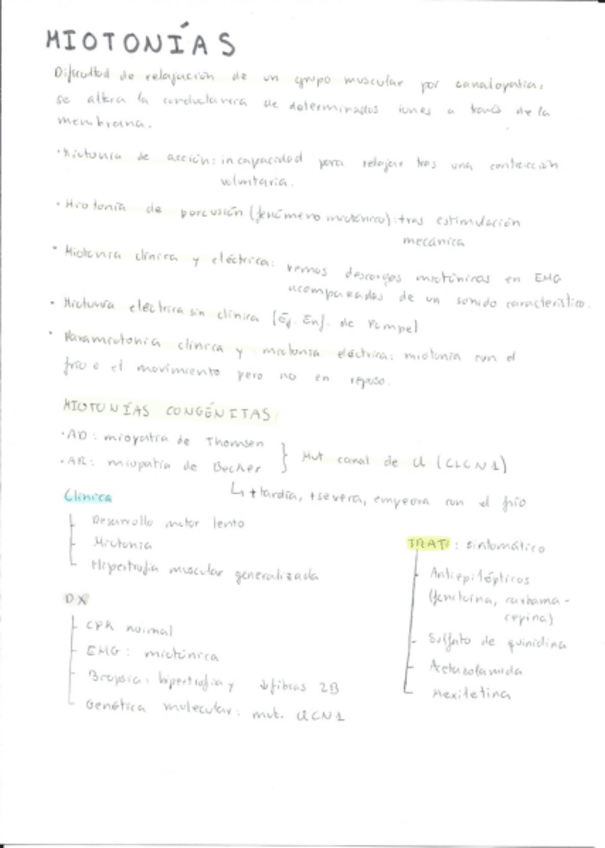 MIOTONÍAS
Dificultad de relajación de un grupo muscular por canalopatía,
se altera la conductancia de determinados iones a través de la
membrana.
· Miotonía de acción: incapacidad para relajar tras una contracción
voluntaria.
· Miotonía de percusión (fenómeno miotónico): tras estimulación
mecánica
· Miotonía clínica y eléctrica: vemos descargas miotónicas en EMG
acompañadas de un sonido característico.
· Miotonía eléctrica sin clínica [Ej. Enf. de Pompe]
· Paramiotonía clínica y miotonía eléctrica: miotonía con el
frío o el movimiento pero no en reposo.
MIOTONÍAS CONGÉNITAS
· AD: miopatía de Thomsen
· AR: miopatía de Becker } Mut canal de Cl (CLCN1)
↳ + tardía, + severa, empeora con el frío
Clínica
Desarrollo motor lento
Miotonía
Hipertrofia muscular generalizada
DX
CPK normal
EMG: miotónica
Biopsia: hipertrofia y ↓ fibras 2B
Genética molecular: mut. CLCN1
TRAT: Sintomático
Antiepilépticos
(fenitoína, carbama-
cepina)
Sulfato de quinidina
Acetazolamida
Mexiletina